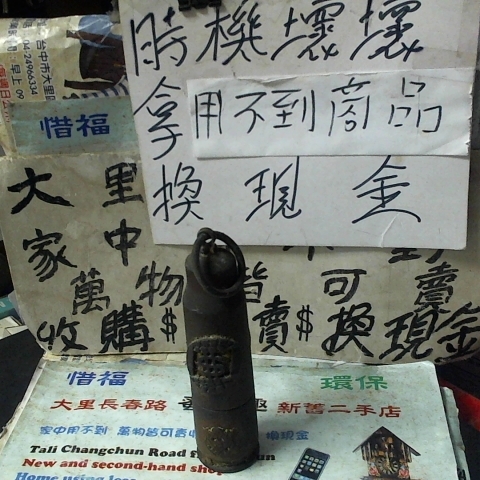 時機壞壞
拿用不到商品
換現金
台中市大里
04-24966334
早上09
惜福
大里
家中
萬物皆可賣
收購$賣$換現金
惜福 環保
大里長春路 新舊二手店
家中用不到 萬物皆可賣 換現金
Tali Changchun Road f
New and second-hand shop
Home using